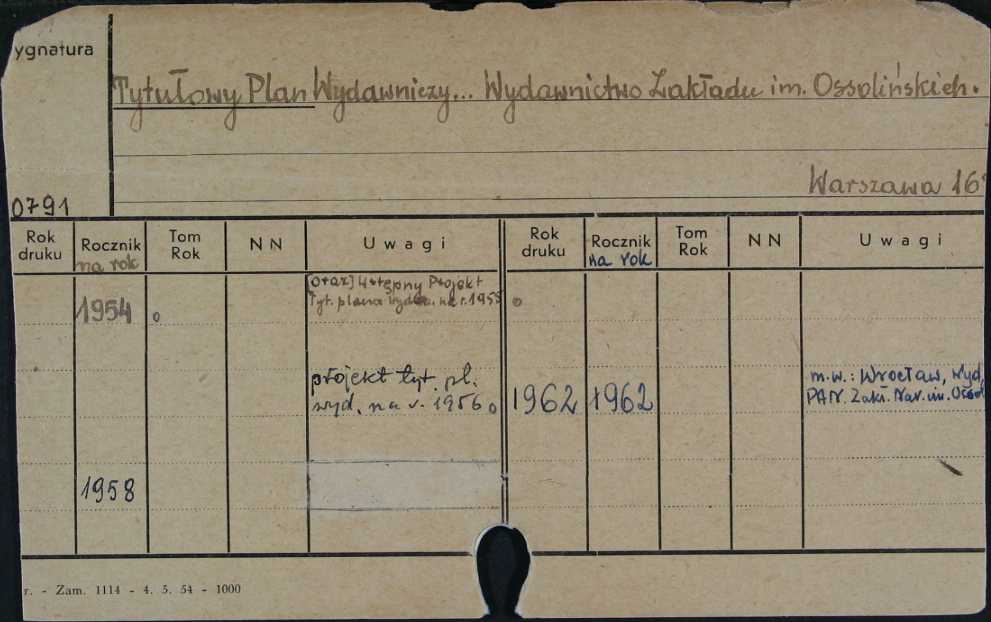 ygnatura
Tytułowy Plan Wydawniczy... Wydawnictwo Zakładu im. Ossolińskich.
Warszawa 16°
0791
Rok druku Rocznik na rok Tom Rok NN Uwagi Rok druku Rocznik na rok Tom Rok NN Uwagi
[oraz] Wstępny Projekt
1954 o Tyt. planu wydaw. na r. 1955 o
projekt tyt. pl.
wyd. na r. 1956 o
1962 1962
m.w.: Wrocław, Wyd.
PAN. Zakł. Nar. im. Ossol
1958
r. - Zam. 1114 - 4. 5. 54 - 1000